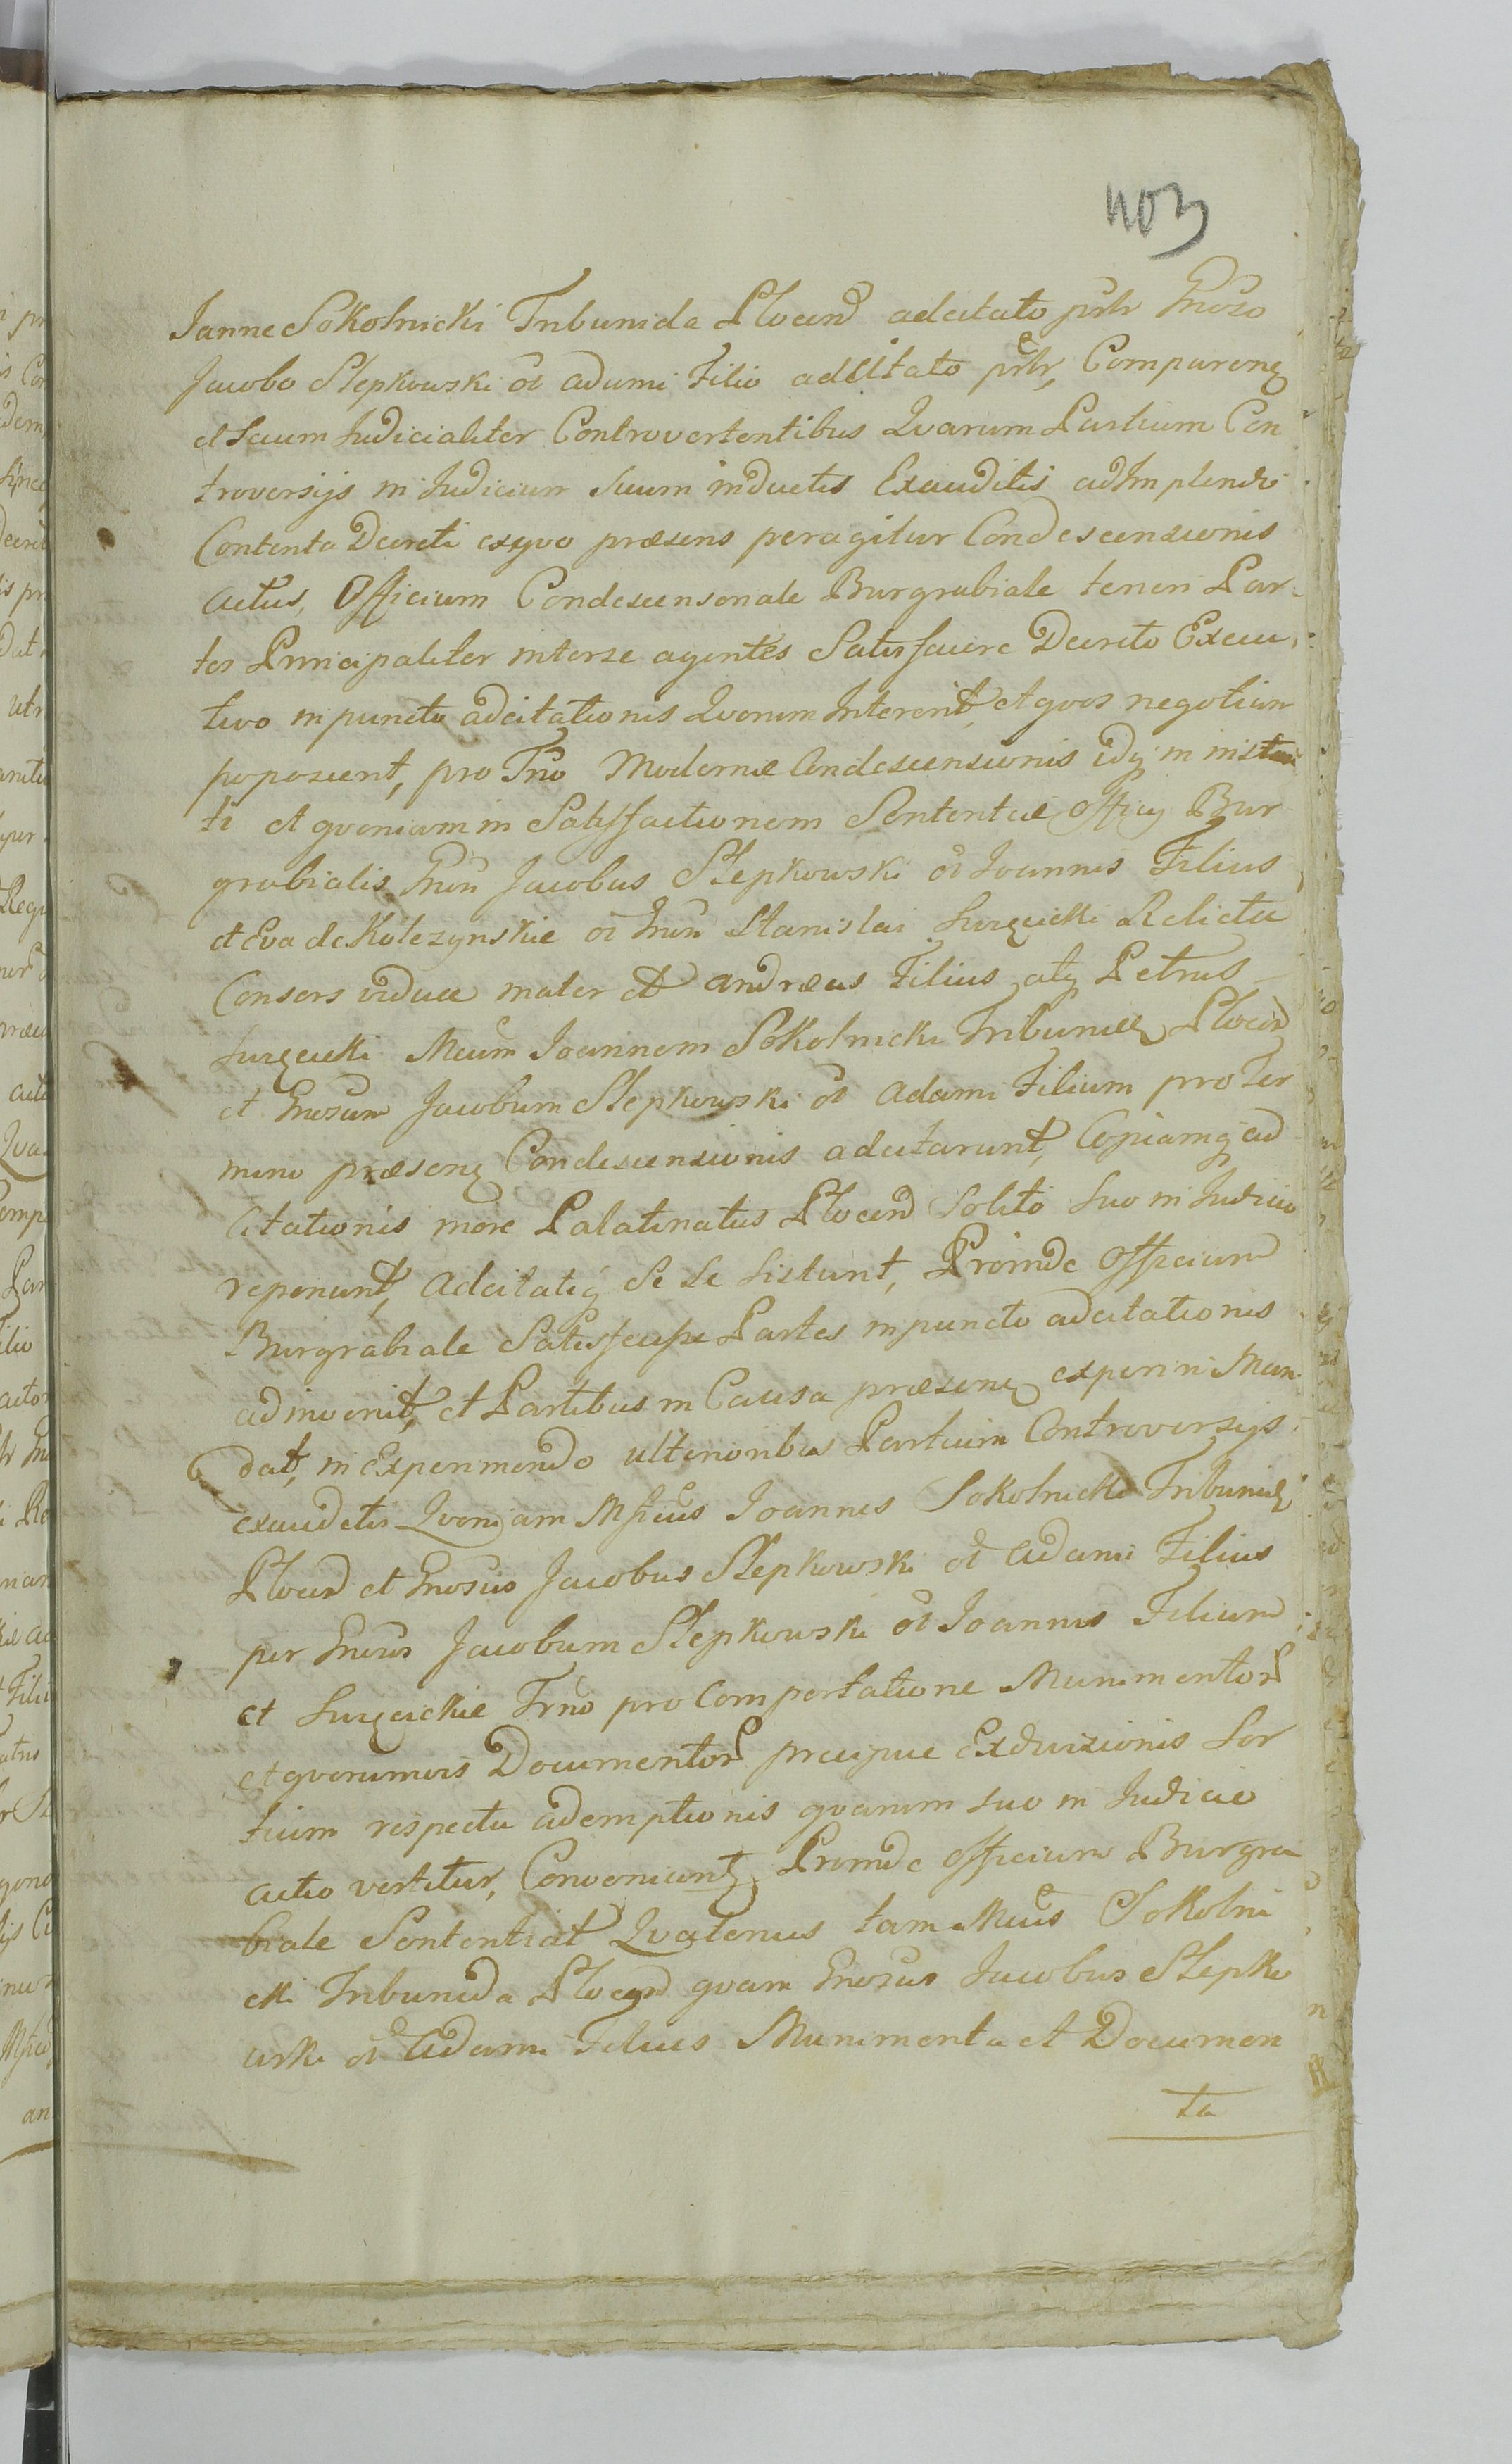 403
Janne Sokolnicki Tribunida Plocen adcitato pnlr Gnoso
Jacobo Slepkowski ol adami Filio adcitato pnlr, Comparenq
et secum Judicialiter Controvertentibus Qvarum Partium Con
troversijs in Judicium suum inductis Exauditis adimplendo
Contenta Decreti exqvo præsens peragitur Condescensionis
actus, Officium Condescensoriale Burgrabiale teneri Par-
tes Principaliter interse agentes Satisfacere Decreto Execu,
tivo in puncto adcitationis Qvorum Intererit, et qvos negotium
poposcerit, pro Tno Modernæ Condescensionis idq in inst
ti et qvoniam in Satisfactionem Sententiæ Officij Bur
grabialis Gnsi Jacobus Slepkowski ol Joannis Filius
et Eva de Kolczynskie ol Gnsi Stanislai Surzycki Relicta
Consors vidua mater et andreas Filius atq Petrus
Surzycki Mcum Joannem Sokolnicki Tribunidq Plocen
et Gnosum Jacobum Slepkowski ol Adami Filium pro Ter
mino præsenq Condescensionis adcitarunt, Copiamq ad
citationis more Palatinatus Plocen Solito suo in Judicio
reponunt, adcitatiq se se sistunt, Proinde Officium
Burgrabiale Satisfecisse Partes in puncto adcitationis
adinvenit, et Partibus in Causa præsenq experiri Man
dat, in Experimendo ulterioribus Partium Controversijs
exauditis Qvoniam Mficus Joannes Sokolnicki Tribunidq
Plocen et Gnosus Jacobus Slepkowski ol Adami Filius
per Gnosus Jacobum Slepkowski ol Joannis Filium
et Surzyckie Trno pro Comportatione Munimentor
et qvorumvis Documentor præcipue Exdivisionis Sor
tium respectu ademptionis qvarum suo in Judicio
actio vertitur, Conveniunt, Proinde Officium Burgra
biale Sententiat Qvatenus tam Mcus Sokolni
cki Tribunida Plocen qvam Gnosus Jacobus Slepko
wski ol Adami Filius Munimenta et Documen
ta